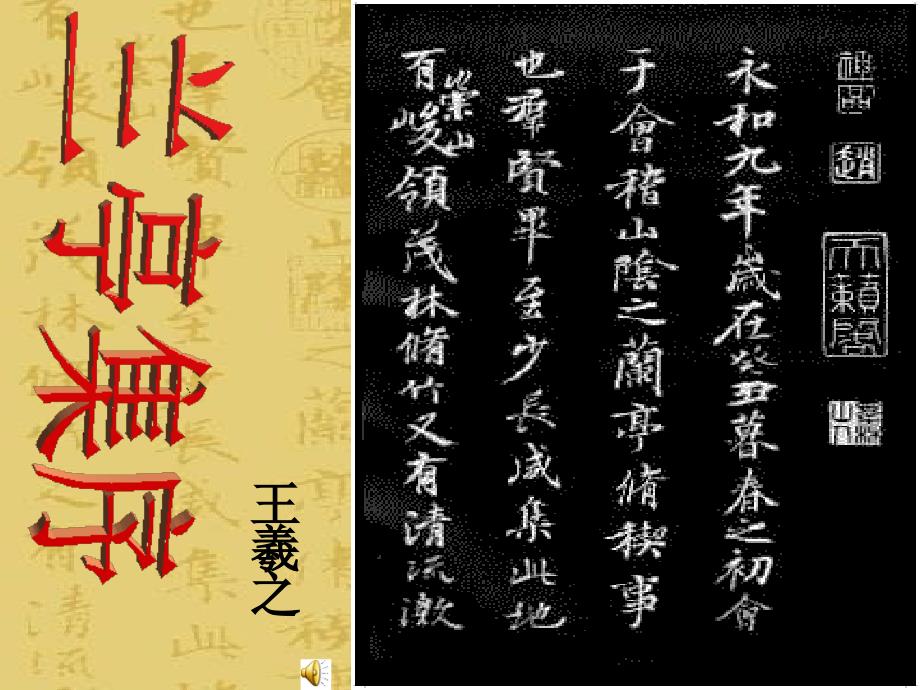 兰亭集序
王羲之
神品
天籟閣
永和九年歲在癸丑暮春之初會
于會稽山陰之蘭亭脩稧事
也羣賢畢至少長咸集此地
有崇山峻領茂林脩竹又有清流激